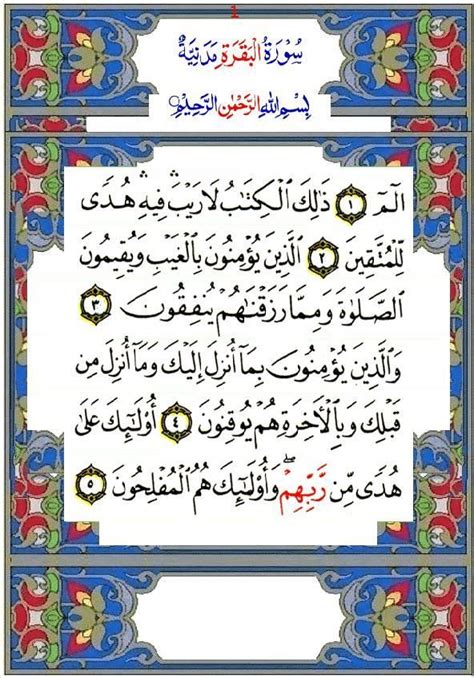 1
سُورَةُ البَقَرَةِ مَدَنِيَّةٌ
بِسْمِ اللهِ الرَّحْمٰنِ الرَّحِيْمِ
الٓمٓ ١ ذَٰلِكَ ٱلْكِتَٰبُ لَا رَيْبَ ۛ فِيهِ ۛ هُدًى
لِّلْمُتَّقِينَ ٢ ٱلَّذِينَ يُؤْمِنُونَ بِٱلْغَيْبِ وَيُقِيمُونَ
ٱلصَّلَوٰةَ وَمِمَّا رَزَقْنَٰهُمْ يُنفِقُونَ ٣
وَٱلَّذِينَ يُؤْمِنُونَ بِمَآ أُنزِلَ إِلَيْكَ وَمَآ أُنزِلَ مِن
قَبْلِكَ وَبِٱلْأَخِرَةِ هُمْ يُوقِنُونَ ٤ أُو۟لَٰٓئِكَ عَلَىٰ
هُدًى مِّن رَّبِّهِمْ ۖ وَأُو۟لَٰٓئِكَ هُمُ ٱلْمُفْلِحُونَ ٥